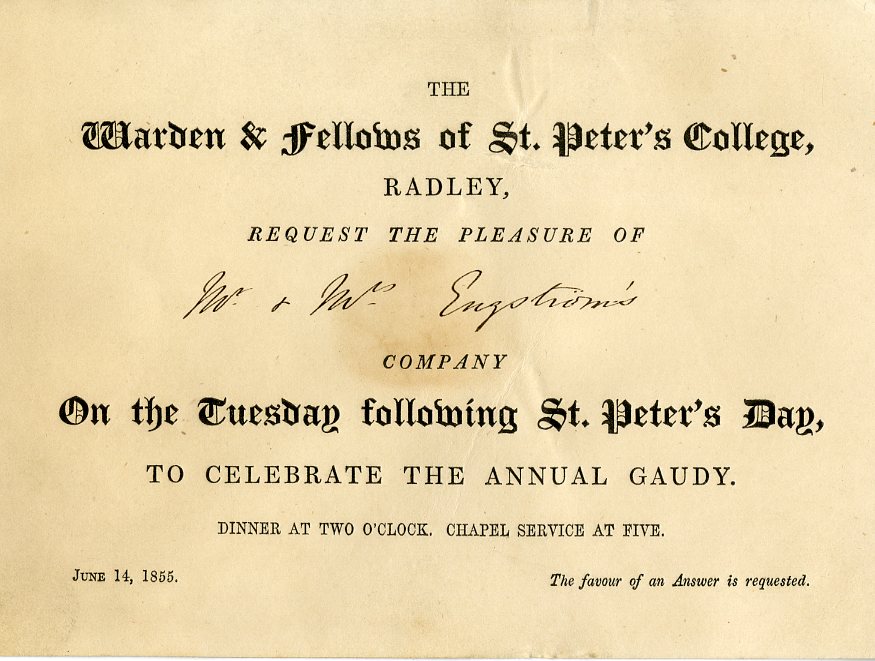 THE
Warden & Fellows of St. Peter's College,
RADLEY,
REQUEST THE PLEASURE OF
Mr. & Mrs. Engström's
COMPANY
On the Tuesday following St. Peter's Day,
TO CELEBRATE THE ANNUAL GAUDY.
DINNER AT TWO O'CLOCK. CHAPEL SERVICE AT FIVE.
JUNE 14, 1855.
The favour of an Answer is requested.